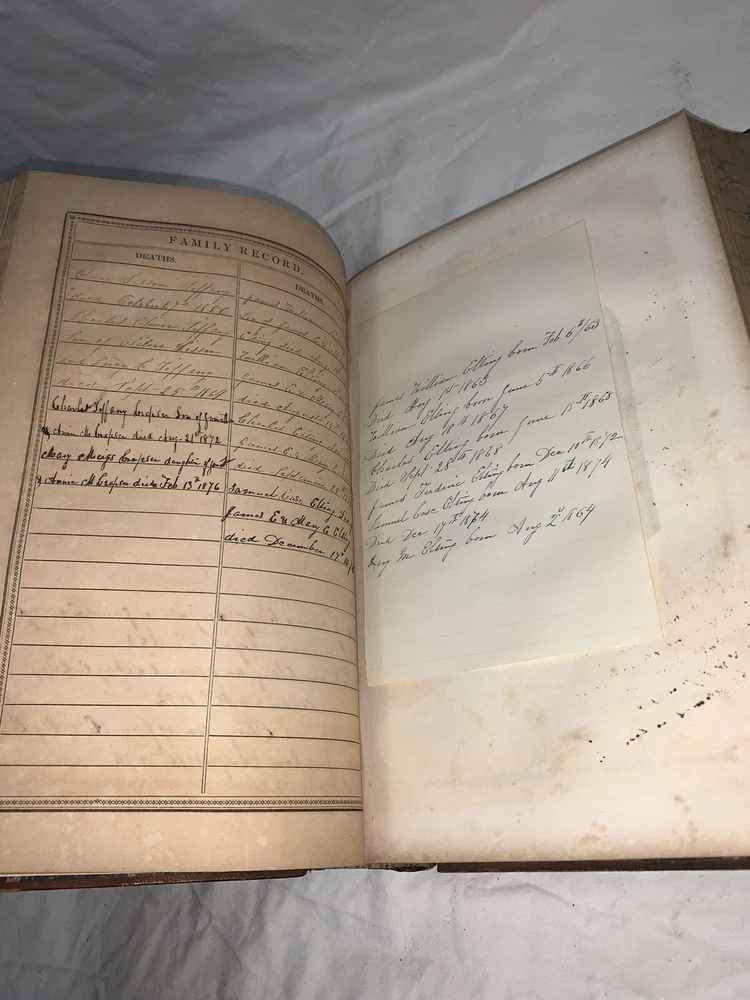 FAMILY RECORD.
DEATHS.
Oliver Sisson Tiffany
died February 7th 1856
Charles Oliver Tiffany
Son of Oliver Sisson
and Lucy C Tiffany
died Sept 25th 1864
Charles Tiffany Son of
& Annie M died Aug 21st 1872
May Meigs daughter of
& Annie M died Feb 13th 1876
DEATHS
James William
Son of James E &
Elting died Aug
William Elting
James E & Mary C
died August 18th
Charles Elting
James E & Mary C
died September 28th
Samuel Case Elting Son of
James E & Mary C Elting
died December 17th 187
James William Elting born Feb 6th/63
Died Aug 1st 1863
William Elting born June 5th 1866
Died Aug 18th 1867
Charles Elting born June 15th 1868
Died Sept 28th 1868
James Elting born Dec 10th 1872
Samuel Case Elting born Aug 11th 1874
Died Dec 17th 1874
May M Elting born Aug 2d 1864